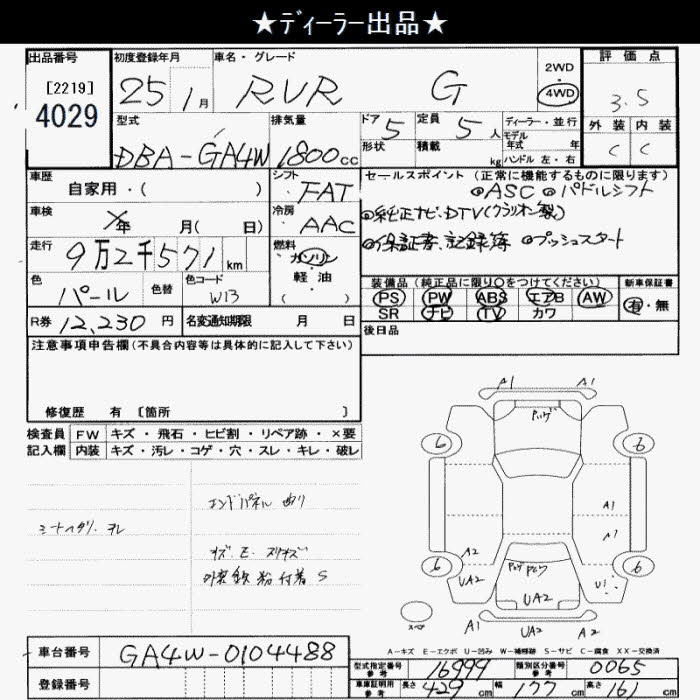 ★ディーラー出品★
出品番号
[2219]
4029
初度登録年月
25 1月
車名・グレード
RVR G
2WD
・
4WD
評価点
3.5
外装 内装
C C
型式
DBA-GA4W
排気量
1800cc
ドア 5
形状
定員 5人
積載 kg
ディーラー・並行
モデル
年式 年
ハンドル 左・右
車歴
自家用・( )
シフト
FAT
セールスポイント (正常に機能するものに限ります)
◎ASC ◎パドルシフト
◎純正ナビ・DTV(クラリオン製)
◎保証書、記録簿 ◎プッシュスタート
車検
年 月( 日)
冷房
AAC
走行
9万2千571km
燃料
ガソリン
・
軽・油
( )
色
パール
色替
色コード
W13
装備品 (純正品に限り○をつけてください)
PS PW ABS エアB AW
SR ナビ TV カワ
新車保証書
有・無
R券 12,230円
名変通知期限 月 日
後日品
注意事項申告欄(不具合内容等は具体的に記入して下さい)
修復歴 有 [箇所 ]
検査員 FW キズ・飛石・ヒビ割・リペア跡・×要
記入欄 内装 キズ・汚レ・コゲ・穴・スレ・キレ・破レ
エンドパネル 曲り
シートヘタリ・スレ
キズ・E・スリキズ
外装鉄粉付着 S
A1 A1
6 6
A1
A1
A2
6 6
UA2 U1
UA2
スペア
A1 UA2 A2
A-キズ E-エクボ U-凹み W-補修跡 S-サビ C-腐食 XX-交換済
車台番号 GA4W-0104488
登録番号
型式指定番号
参考
16999
類別区分番号
参考
0065
車庫証明用
参考
長さ 429cm 幅 177cm 高さ 161cm